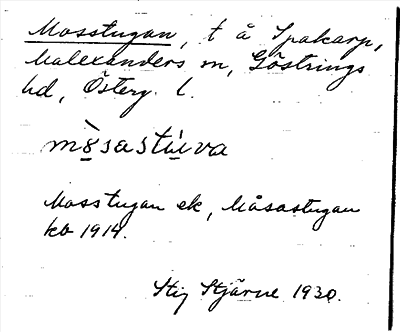 Mosstugan, t å Spakarp,
Malexanders sn, Göstrings
hd, Österg. l.
mò̤sastṳ́va
Mosstugan ek, Måsastugan
kb 1914.
Stig Stjärne 1930.